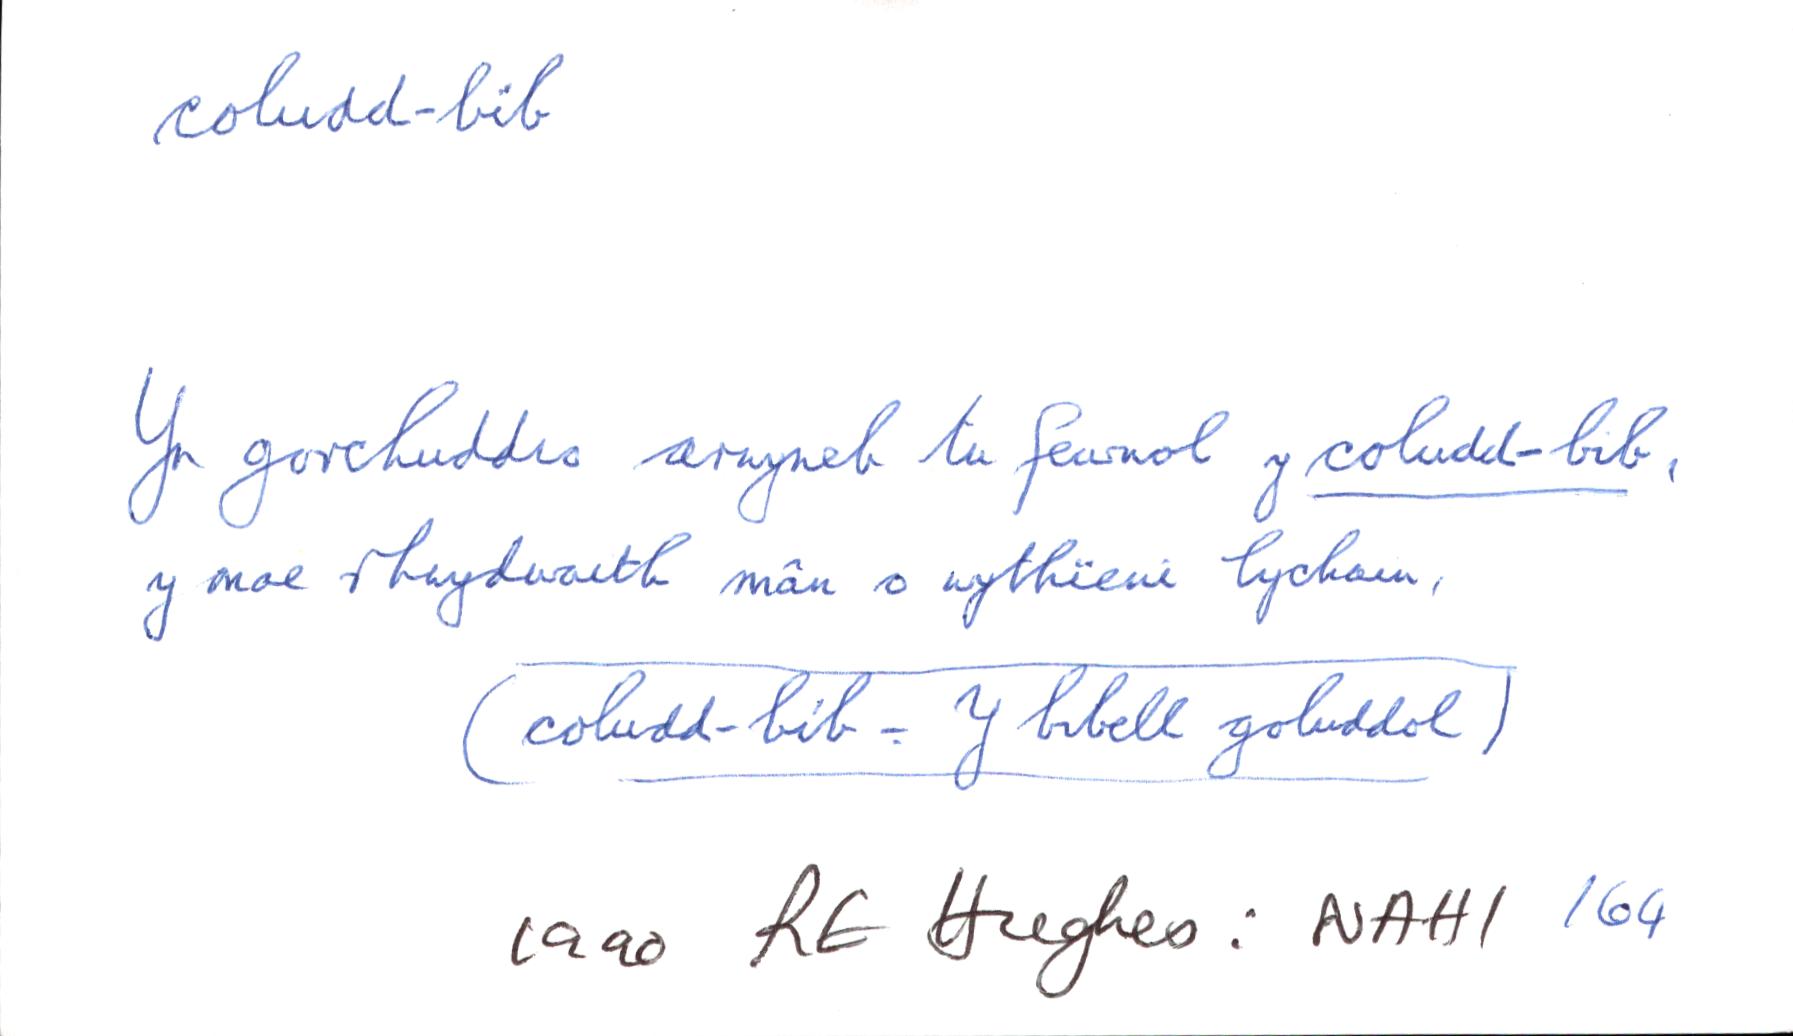 coludd-bib
Yn gorchuddio arwyneb tu fewnol y coludd-bib,
y mae rhwydwaith mân o wythïeni lychain,
(coludd-bib = Y bibell goluddol)
1990 RE Hughes: NAHI 164